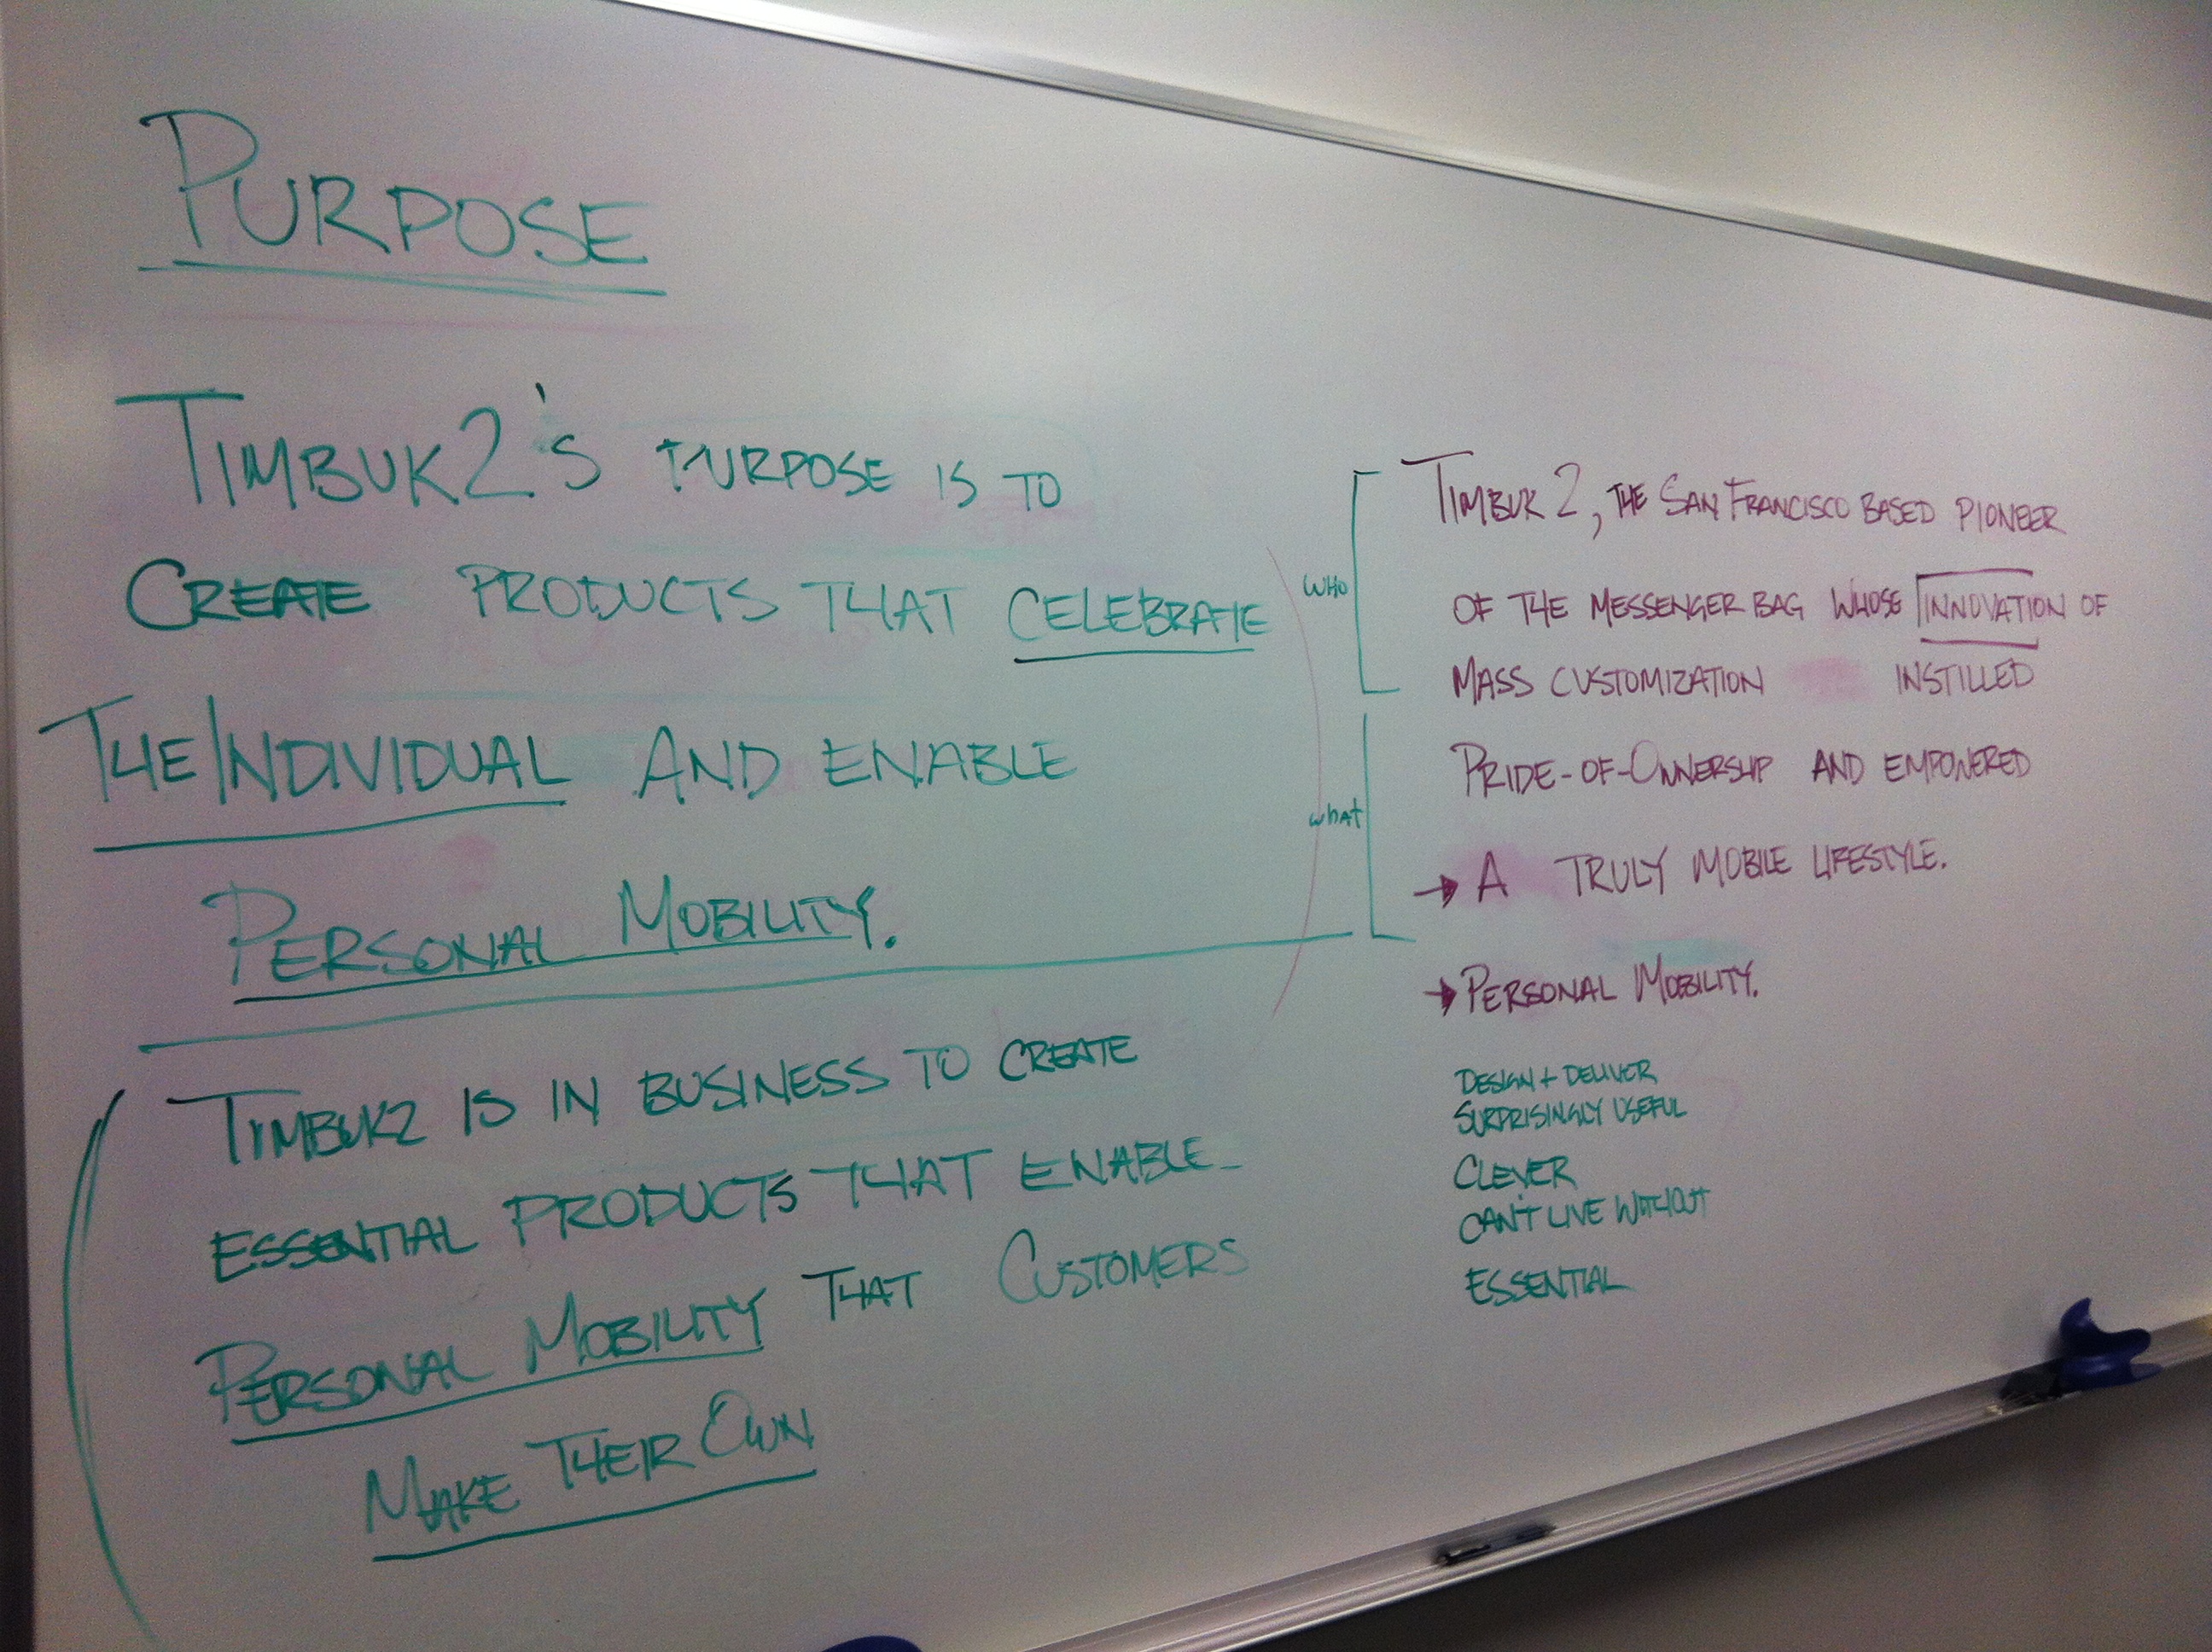 PURPOSE
TIMBUK2'S PURPOSE IS TO
CREATE PRODUCTS THAT CELEBRATE
THE INDIVIDUAL AND ENABLE
PERSONAL MOBILITY.
TIMBUK2 IS IN BUSINESS TO CREATE
ESSENTIAL PRODUCTS THAT ENABLE
PERSONAL MOBILITY THAT CUSTOMERS
MAKE THEIR OWN
WHO
TIMBUK2, THE SAN FRANCISCO BASED PIONEER
OF THE MESSENGER BAG WHOSE INNOVATION OF
MASS CUSTOMIZATION INSTILLED
what
PRIDE-OF-OWNERSHIP AND EMPOWERED
→ A TRULY MOBILE LIFESTYLE.
→ PERSONAL MOBILITY.
DESIGN + DELIVER
SURPRISINGLY USEFUL
CLEVER
CAN'T LIVE WITHOUT
ESSENTIAL